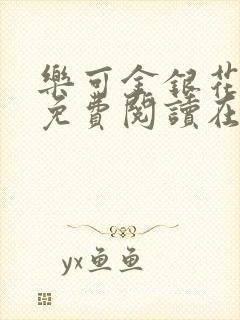 樂可金銀花
免費閱讀在
yx鱼鱼